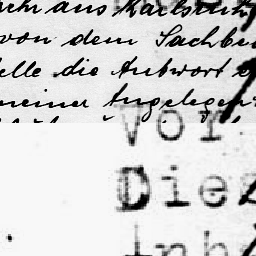 aus Karlsruh
von dem Sachbe
elle die Antwort
meiner Angelegen
Vor
Dies
Inh